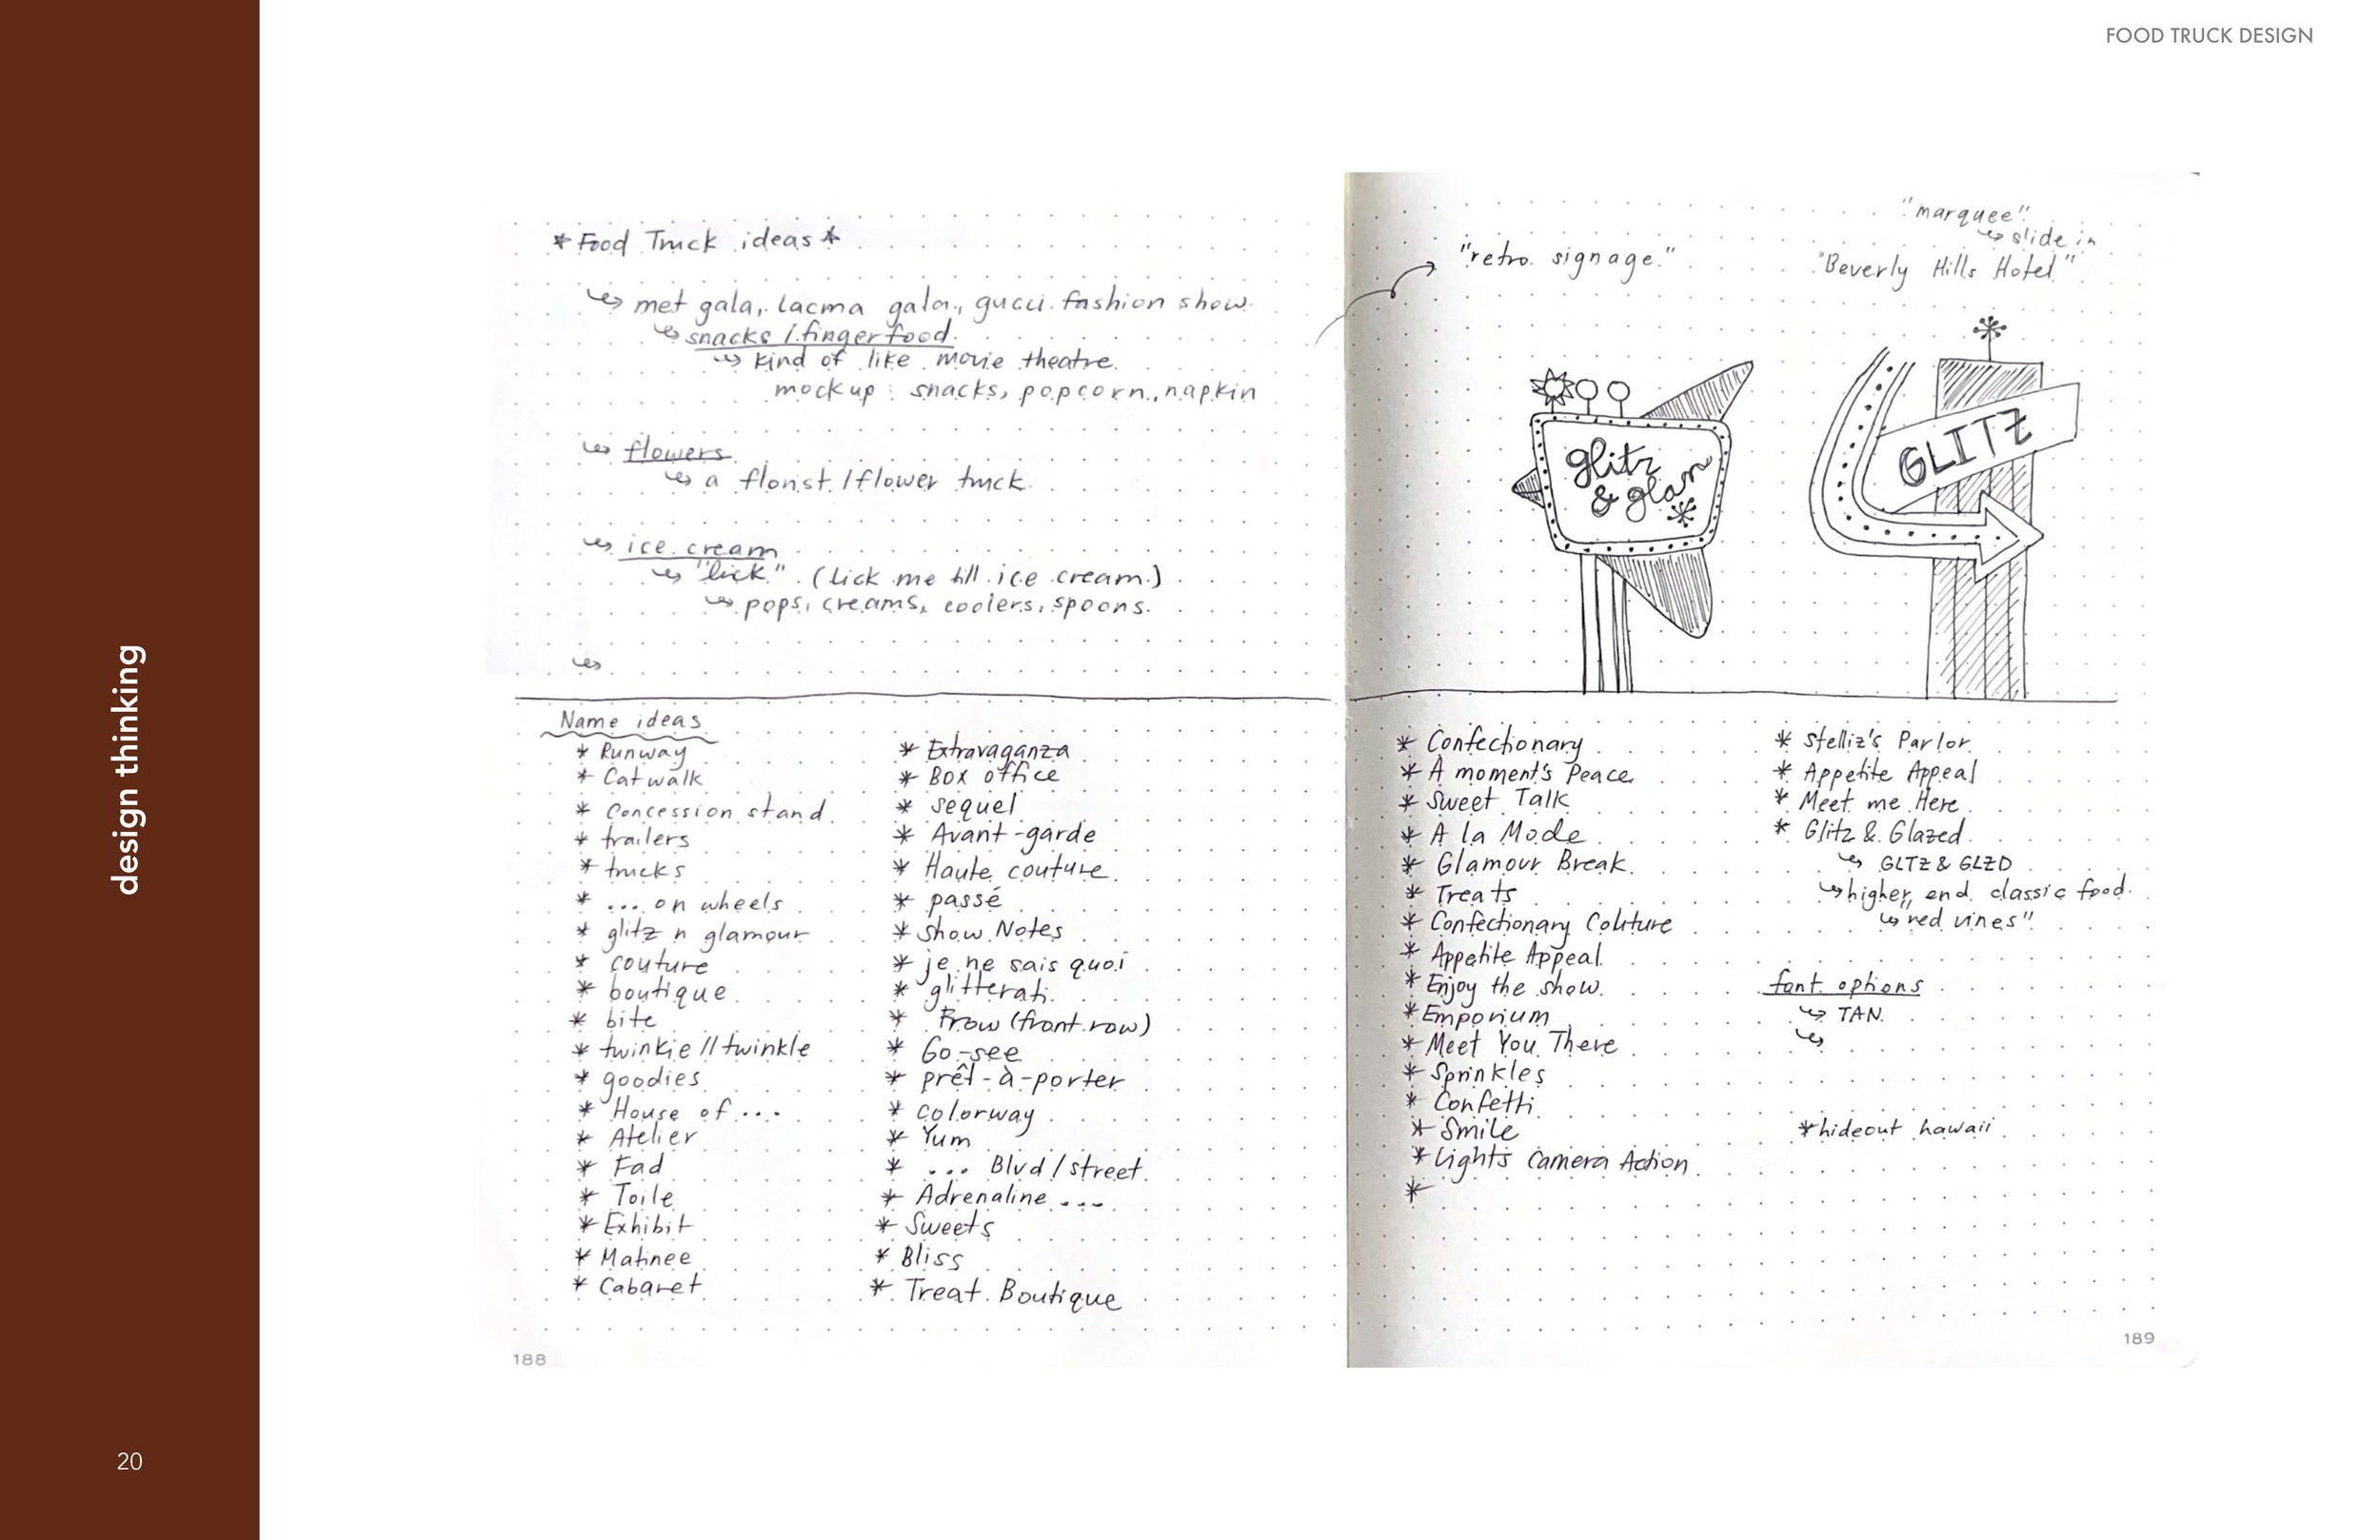 FOOD TRUCK DESIGN
design thinking
20
* Food Truck ideas *
met gala, lacma gala, gucci fashion show
snacks / fingerfood
kind of like movie theatre
mockup: snacks, popcorn, napkin
flowers
a florist / flower truck
ice cream
"lick" (lick me till ice cream)
pops, creams, coolers, spoons.
Name ideas
* Runway
* Catwalk
* Concession stand
* trailers
* trucks
* ... on wheels
* glitz n glamour
* couture
* boutique
* bite
* twinkie // twinkle
* goodies
* House of ...
* Atelier
* Fad
* Toile
* Exhibit
* Matinee
* Cabaret
* Extravaganza
* Box office
* sequel
* Avant-garde
* Haute couture
* passé
* show Notes
* je ne sais quoi
* glitterati
* Frow (front row)
* Go-see
* prêt-à-porter
* colorway
* Yum
* ... Blvd / street
* Adrenaline ...
* Sweets
* Bliss
* Treat Boutique
188
"retro signage"
"marquee"
slide in
"Beverly Hills Hotel"
glitz
& glam
GLITZ
* Confectionary
* A moment's Peace
* Sweet Talk
* A la Mode
* Glamour Break
* Treats
* Confectionary Couture
* Appetite Appeal
* Enjoy the show
* Emporium
* Meet You There
* Sprinkles
* Confetti
* Smile
* Lights Camera Action
*
* Stelliz's Parlor
* Appetite Appeal
* Meet me Here
* Glitz & Glazed
GLTZ & GLZD
higher end classic food
"red vines"
font options
TAN
* hideout hawaii
189